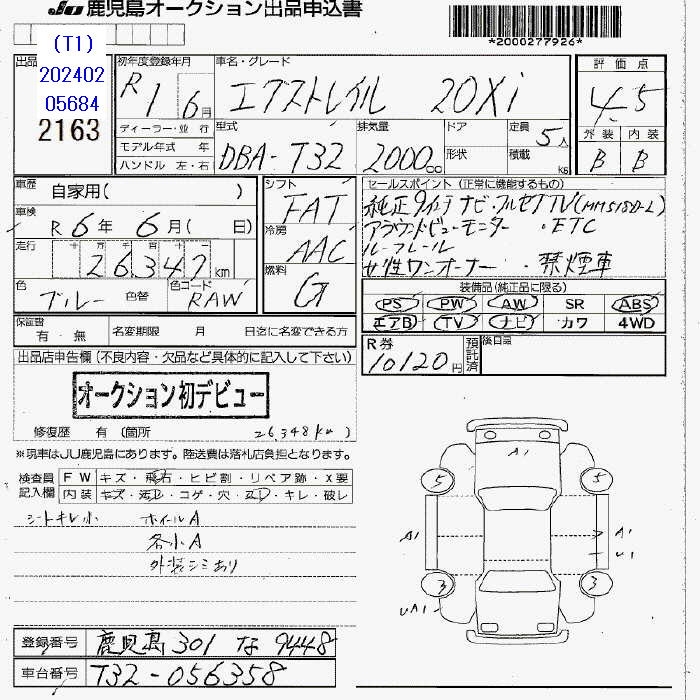 JU 鹿児島オークション出品申込書
*2000277926*
出品
(T1)
202402
05684
2163
初年度登録年月
R1 6月
ディーラー・並 行
モデル年式 年
ハンドル 左・右
車名・グレード
エクストレイル 20Xi
型式
DBA-T32
排気量
2000cc
ドア
形状
定員
5人
積載
kg
評価点
4.5
外装 内装
B B
車歴
自家用( )
車検
R 6年 6月( 日)
走行
十 万 千 百 十
26347km
色
ブルー 色替
色コード
RAW
シフト
FAT
冷房
AAC
燃料
G
セールスポイント (正常に機能するもの)
純正9インチナビ・フルセグTV(MM518D-L)
アラウンドビューモニター ・ETC
ルーフレール
女性ワンオーナー ・禁煙車
装備品(純正品に限る)
PS PW AW SR ABS
エアB TV ナビ カワ 4WD
保証書
有・無
名変期限 月 日迄に名変できる方
R券
10120円
預託済
後日品
出品店申告欄(不良内容・欠品など具体的に記入して下さい)
オークション初デビュー
修復歴 有 (箇所 26,348km)
※現車はJU鹿児島にあります。陸送費は落札店負担となります。
検査員
記入欄
FW キズ・飛石・ヒビ割・リペア跡・X要
内装 キズ・汚レ・コゲ・穴・スレ・キレ・破レ
シートキレ小 ホイールA
各小A
外装シミあり
A1
5 5
A1 A1
U1
3 3
UA1
A1
登録番号 鹿児島 301 な 9448
車台番号 T32-056358